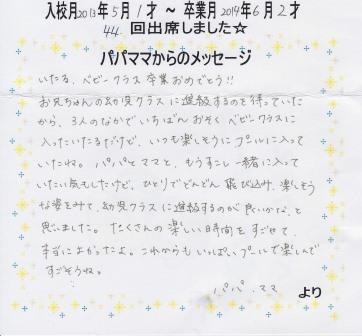 入校月2013年5月1才～卒業月2014年6月2才
44回出席しました☆
パパママからのメッセージ
いたる、ベビークラス卒業おめでとう!!
お兄ちゃんの幼児クラスに進級するのを待っていた
から、3人のなかでいちばんおそくベビークラスに
入ったいたるだけど、いつも楽しそうにプールに入って
いたね。パパとママと、もうすこし一緒に入って
いたい気もしたけど、ひとりでどんどん飛び込み、楽しそう
な姿をみて、幼児クラスに進級するのが良いかな、と
思いました。たくさんの楽しい時間をすごせて、
本当によかったよ。これからもいっぱいプールで楽しんで
すごそうね。
パパ・ママより